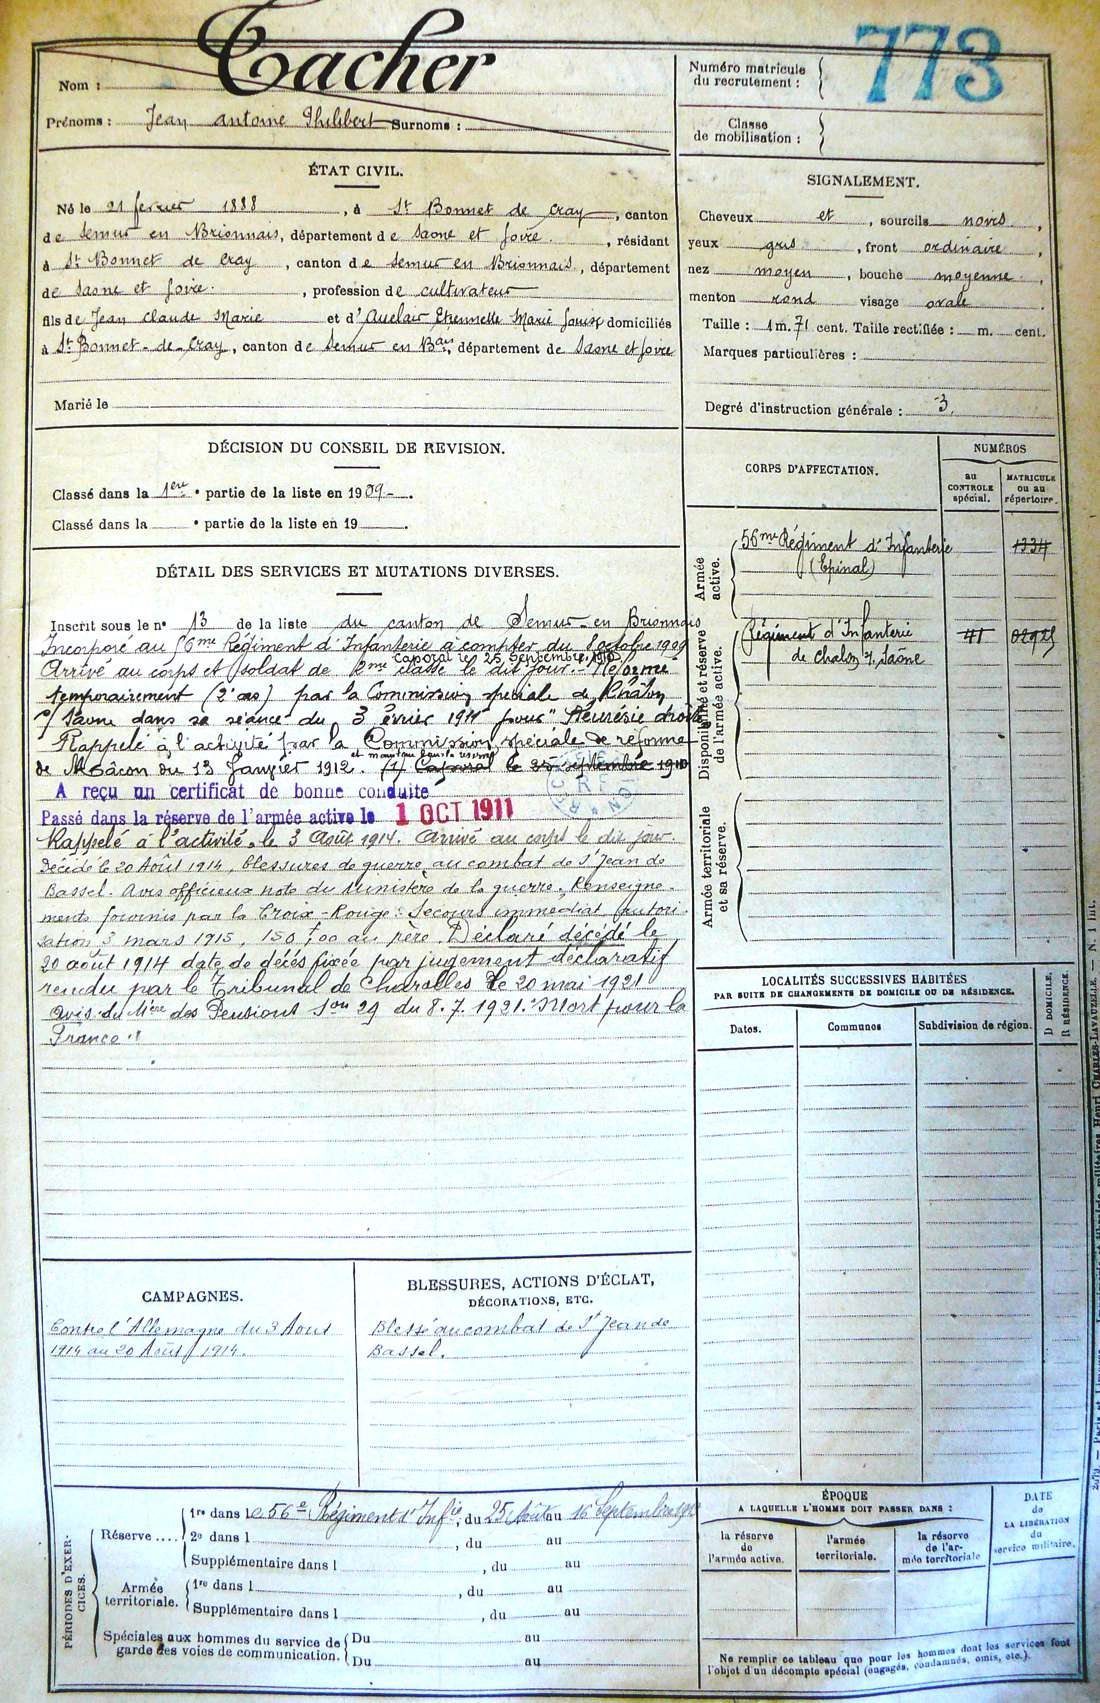 Nom : Tacher
Prénoms : Jean Antoine Philibert Surnoms :
Numéro matricule du recrutement : 773
Classe de mobilisation :
ÉTAT CIVIL.
Né le 21 fevrier 1888, à St Bonnet de Cray, canton
de Semur en Brionnais, département de Saone et Loire, résidant
à St Bonnet de Cray, canton de Semur en Brionnais, département
de Saone et Loire, profession de cultivateur
fils de Jean Claude Marie et d'Auclair Etiennette Marie Louise domiciliés
à St Bonnet-de-Cray, canton de Semur en Bais, département de Saone et Loire
Marié le
SIGNALEMENT.
Cheveux et, sourcils noirs,
yeux gris, front ordinaire,
nez moyen, bouche moyenne,
menton rond visage ovale
Taille : 1 m. 71 cent. Taille rectifiée : m. cent.
Marques particulières :
Degré d'instruction générale : 3.
DÉCISION DU CONSEIL DE REVISION.
Classé dans la 1ère partie de la liste en 1909
Classé dans la e partie de la liste en 19
DÉTAIL DES SERVICES ET MUTATIONS DIVERSES.
Inscrit sous le n° 13 de la liste du canton de Semur-en Brionnais
Incorporé au 56me Régiment d'Infanterie à compter du 8 octobre 1909
Caporal le 25 Septembre 1910
Arrivé au corps et soldat de 2me classe le dit jour. Réformé
temporairement (2° cas) par la Commission spéciale de Châlon
s/ Saone dans sa séance du 3 évrier 1911 pour "Pleurésie droite
Rappelé à l'activité par la Commission spéciale de réforme
et maintenu dans la réserve
de Mâcon du 13 Janvier 1912. (1) Caporal le 25 septembre 1910
A reçu un certificat de bonne conduite
Passé dans la réserve de l'armée active le 1 OCT 1911
Rappelé à l'activité le 3 Août 1914. Arrivé au corps le dit jour.
Décédé le 20 Août 1914, blessures de guerre, au combat de St Jean de
Bassel. Avis officieux note du Ministère de la guerre. Renseigne-
ments fournis par la Croix-Rouge. Secours immédiat autori-
sation 3 mars 1915, 150f,00 au père. Déclaré décédé le
20 août 1914 date de décès fixée par jugement déclaratif
rendu par le Tribunal de Charolles le 20 mai 1921
avis du Mère des Pensions Son 29 du 8.7.1921. "Mort pour la
France"
CORPS D'AFFECTATION.
NUMÉROS
au CONTROLE spécial.
MATRICULE ou au répertoire.
Armée active.
56me Régiment d'Infanterie
(Epinal)
1334
Disponibilité et réserve de l'armée active.
Régiment d'Infanterie
de Chalon s/ Saône
41
02925
Armée territoriale et sa réserve.
LOCALITÉS SUCCESSIVES HABITÉES
PAR SUITE DE CHANGEMENTS DE DOMICILE OU DE RÉSIDENCE.
Dates. Communes Subdivision de région.
D DOMICILE.
R RÉSIDENCE.
CAMPAGNES.
Contre l'Allemagne du 3 Aout
1914 au 20 Août 1914.
BLESSURES, ACTIONS D'ÉCLAT,
DÉCORATIONS, ETC.
Blessé au combat de St Jean de
Bassel.
PÉRIODES D'EXERCICES.
Réserve ....
1re dans le 56e Régiment d'Infie, du 25 Août au 16 Septembre
2e dans l , du au
Supplémentaire dans l , du au
Armée territoriale.
1re dans l , du au
Supplémentaire dans l , du au
Spéciales aux hommes du service de
garde des voies de communication.
Du au
Du au
ÉPOQUE
A LAQUELLE L'HOMME DOIT PASSER DANS :
la réserve de l'armée active.
l'armée territoriale.
la réserve de l'armée territoriale
DATE de LA LIBÉRATION du service militaire.
Ne remplir ce tableau que pour les hommes dont les services font
l'objet d'un décompte spécial (engagés, condamnés, omis, etc.).